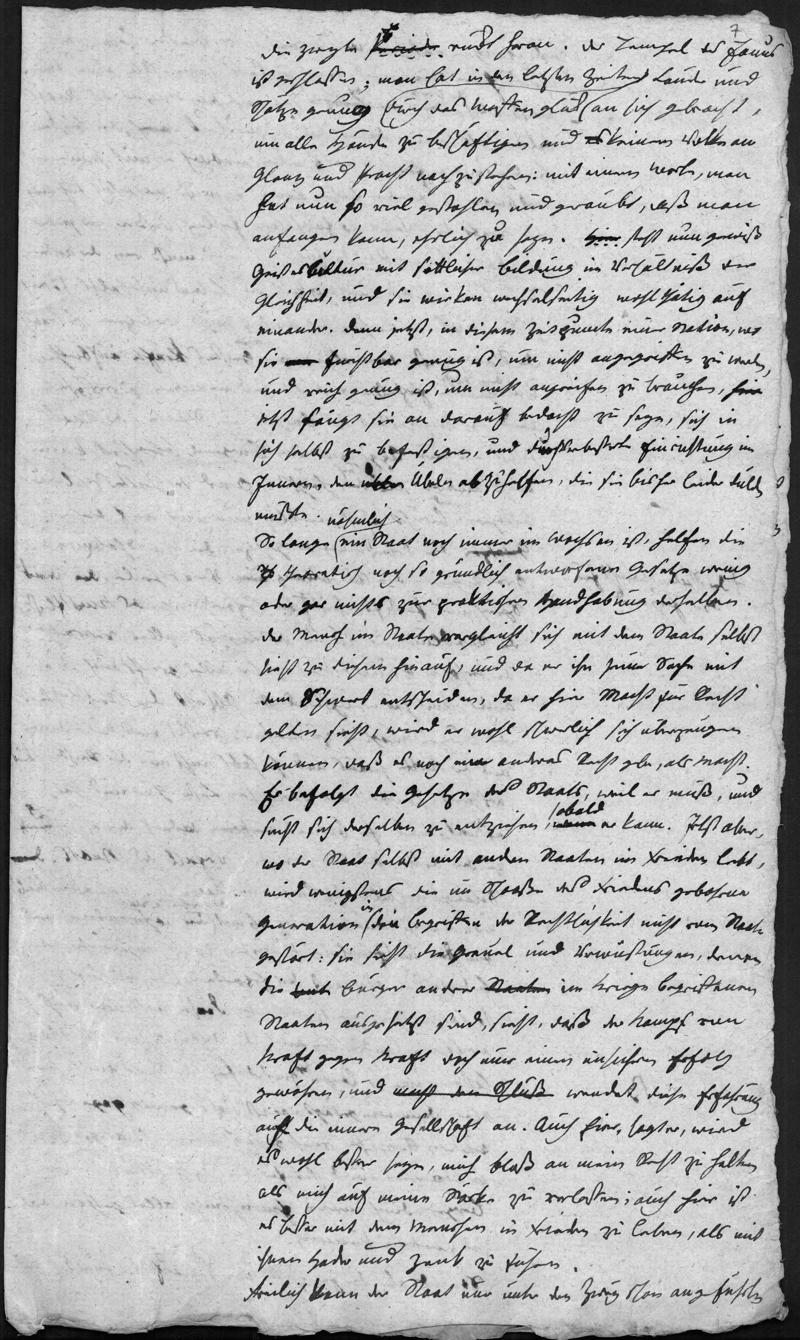 7
die zweyte Periode rückt heran. der Tempel des Janus
ist geschlossen; man hat in den letzten Zeiten Länder und
Schätze genug durch das Waffenglück an sich gebracht,
um alle Hände zu beschäftigen und keinem Volke an
Glanz und Pracht nachzustehen: mit einem Worte, man
hat nun so viel gestohlen und geraubt, daß man
anfangen kann, ehrlich zu seyn. hier steht nun gewiß
Geisteskultur mit sittlicher Bildung im Verhältniß der
Gleichheit, und sie wirken wechselseitig wohlthätig auf
einander. denn jetzt, in diesem Zeitpunkte einer Nation, wo
sie furchtbar genug ist, um nicht angegriffen zu werden,
und reich genug ist, um nicht angreifen zu brauchen,
jetzt fängt sie an darauf bedacht zu seyn, sich in
sich selbst zu befestigen, und durch verbesserte Einrichtung im
Innern, den Übeln abzuhelfen, die sie bisher leider dulden
mußte.
So lange nämlich ein Staat noch immer im Wachsen ist, helfen die
theoretisch noch so gründlich entworfenen Gesetze wenig
oder gar nichts zur praktischen Handhabung derselben.
der Mensch im Staate vergleicht sich mit dem Staate selbst
sieht zu diesem hinauf, und da er ihn seine Sache mit
dem Schwert entscheiden, da er hier Macht für Recht
gelten sieht, wird er wohl schwerlich sich überzeugen
können, daß es noch ein anderes Recht gebe, als Macht.
Er befolgt die Gesetze des Staats, weil er muß, und
sucht sich derselben zu entziehen, sobald er kann. Itzt aber,
wo der Staat selbst mit andern Staaten im Frieden lebt,
wird wenigstens die im Schooße des Friedens gebohrne
Generation in den Begriffen der Rechtlichkeit nicht vom Staate
gestört: sie sieht die Greuel und Verwüstungen, denen
die Bürger anderer im Kriege begriffenen
Staaten ausgesetzt sind, sieht, daß der Kampf von
Kraft gegen Kraft doch nur einen unsichern Erfolg
gewähren, und macht den Schluß wendet diese Erfahrung
auf die innere Gesellschaft an. Auch hier, sagt er, wird
es wohl besser seyn, mich bloß an mein Recht zu halten
als mich auf meine Stärke zu verlassen; auch hier ist
es besser mit dem Menschen in Frieden zu leben, als mit
ihnen Hader und Zank zu führen.
Freilich kann der Staat nur unter den zwey schon angeführten